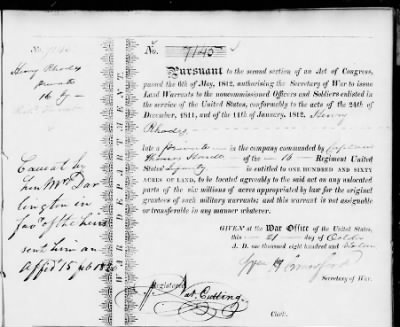 No. 7145
Henry Rhodes
private
16 by
WAR DEPARTMENT.
No. 7145
PURSUANT to the second section of an Act of Congress,
passed the 6th of May, 1812, authorising the Secretary of War to issue
Land Warrants to the noncommissioned Officers and Soldiers enlisted in
the service of the United States, conformably to the acts of the 24th of
December, 1811, and of the 11th of January, 1812, Henry
Rhodes
late a private in the company commanded by Captain
Thomas of the 16 Regiment United
States Infantry is entitled to ONE HUNDRED AND SIXTY
ACRES OF LAND, to be located agreeably to the said act on any unlocated
parts of the six millions of acres appropriated by law for the original
grantees of such military warrants; and this warrant is not assignable
or transferable in any manner whatever.
GIVEN at the War Office of the United States,
this 21 day of Octbr
A. D. one thousand eight hundred and sixteen
Wm H Crawford
Secretary of War.
Registered
Nat. Cutting
Clerk.
Caveat by
Mr Dar
lington in
favr of the heirs
sent him an
Affdt 15 feb 1820